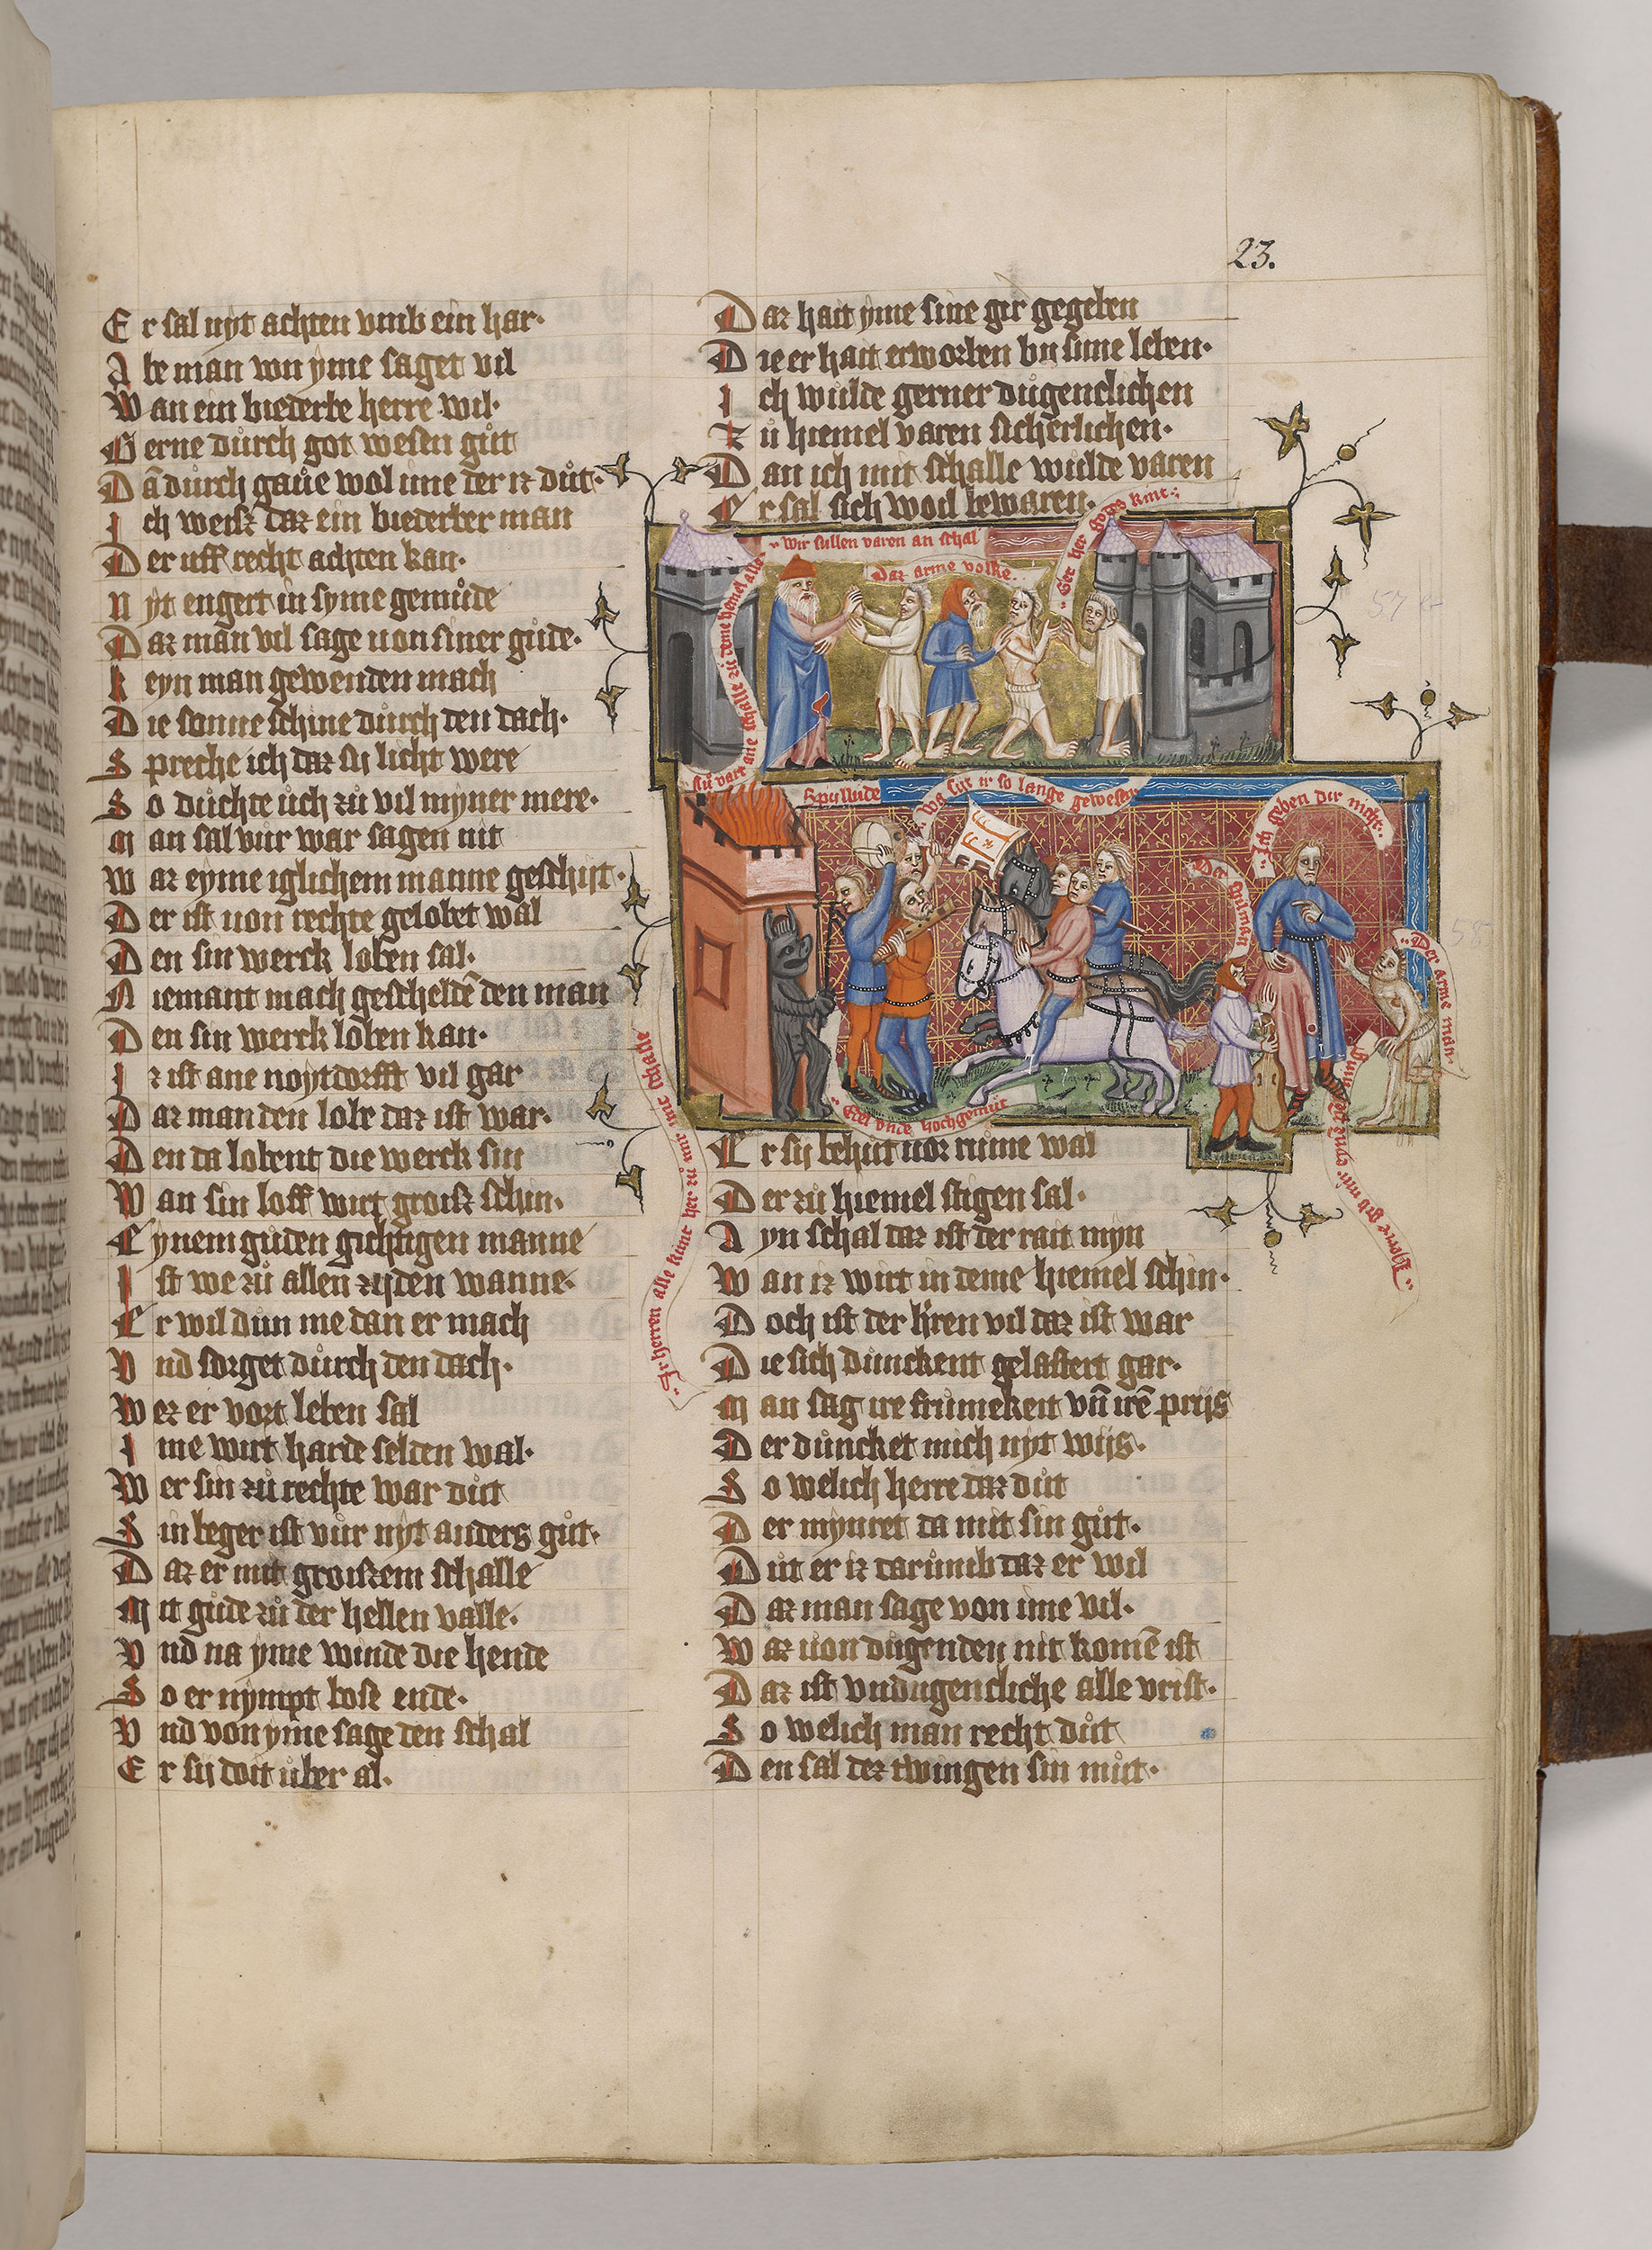 23.
Er sal nyt achten vmb ein har·
Abe man von yme saget vil
Wan ein biederbe herre wil·
Gerne důrch got wesen gůt
Dā důrch gaůe wol ime der iz důt·
Ich weisz daz ein biederber man
Der uff recht achten kan·
Nyt engert in syme gemůde
Daz man vil sage uon siner gůde·
Keyn man gewenden mach
Die sonne schine důrch den dach·
Spreche ich daz sy licht were
So důchte ůch zů vil myner mere·
Man sal vůr war sagen nit
Waz eyme iglichem manne geschiyt·
Der ist uon rechte gelobet wal
Den sin werck loben sal·
Niemant mach gescheldē den man
Den sin werck loben kan·
Iz ist ane noytdorfft vil gar
Daz man den lobe daz ist war·
Den da lobent die werck sin
Wan sin loff wirt groisz schin·
Eynem gůden gichtigen manne
Ist we zů allen zyden wanne·
Er wil důn me dan er mach
Vnd sorget důrch den dach·
Wez er vort leben sal
Ime wirt harde selden wal·
Wer sin zů rechte war důt
Sin leger ist vůr nyt anders gůt·
Daz er mit groiszem schalle
Mit gůde zů der hellen valle·
Vnd na yme winde die hende
So er nympt bose ende·
Vnd von yme sage den schal
Er sy doit ůber al·
Daz hait yme sine ger gegeben
Die er hait erworben by sime leben·
Ich wůlde gerner důgentlichen
Zů hiemel varen sicherlichen·
Dan ich mit schalle wůlde varen
Er sal sich woil bewaren·
Wir sullen varen an schal
Daz arme volke
Ger her godes kint
sů vart ane schalle zů deme hemel alle
Spyllude
Wa sit ir so lange gewesen
Ich geben dir nicht
Der spilman
Der arme man
Edel vnde hochgemůt
Ir herren alle kůnt her zů mir mit schalle
Er sy behůt uor růme wal
Der zů hiemel stigen sal·
Ayn schal daz ist der rait myn
Wan iz wirt in deme hiemel schin·
Doch ist der h'ren vil daz ist war
Die sich důnckent gelastert gar·
Man sag ire frůmekeit vn̄ irē prijs
Der důncket mich nyt wijs·
So welich herre daz důt
Der mynret da mit sin gůt·
Důt er iz darůmb daz er wil
Daz man sage von ime vil·
Waz uon důgenden nit komē ist
Daz ist vndugentliche alle vrist·
So welich man recht důt
Den sal dez twingen sin můt·